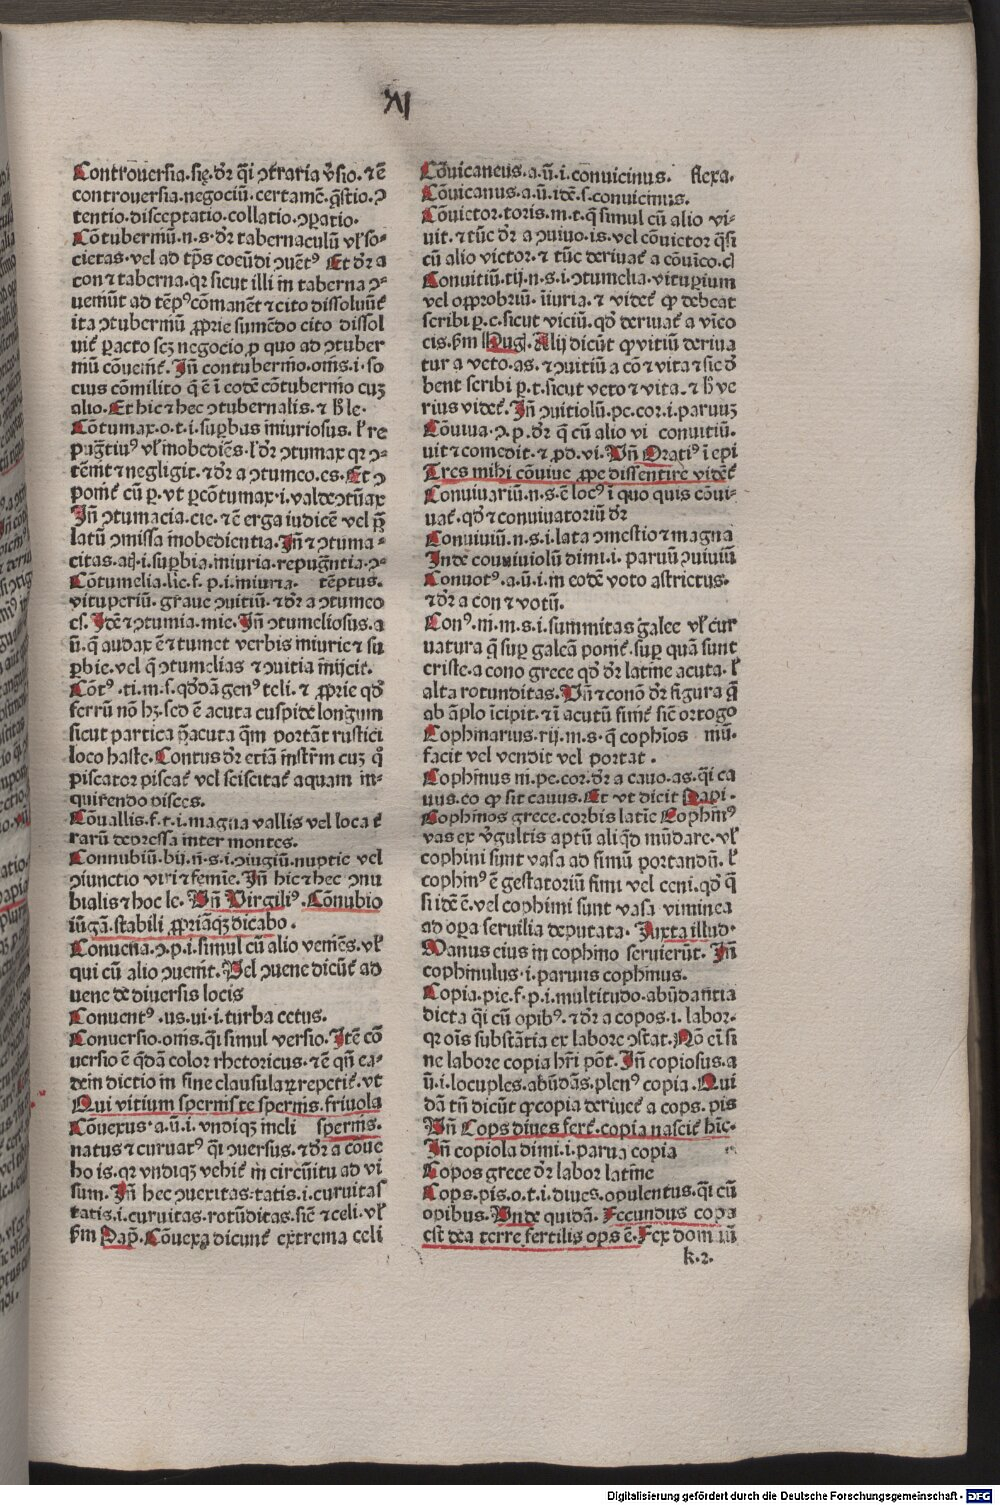 XI
Controuersia.sie.dr̄ q̄si ꝯtraria v̉sio.⁊ ē
controuersia.negociū.certamē.q̄stio.ꝯ
tentio.disceptatio.collatio.ꝯparatio.
Cōtuberniū.n.s.dr̄ tabernaculū vl̉ so-
cietas.vel ad tp̄s coeūdi ꝯuētꝰ Et dr̄ a
con ⁊ taberna.qr sicut illi in taberna ꝯ-
ueniūt ad tēpꝰ cōmanēt ⁊ cito dissoluūt̉
ita ꝯtuberniū ꝓprie sumēdo cito dissol
uit̉ ꝑacto scꝫ negocio ꝓ quo ad ꝯtuber
niū cōuenit̉. Jn̄ contubernio.onis.i.so
cius cōmilito q̄ ē ī eodē cōtubernio cuꝫ
alio. Et hic ⁊ hec ꝯtubernalis.⁊ h̉ le.
Cōtumax.o.t.i.suꝑbus iniuriosus. l̉ re
pugn̄tiuꝰ vl̉ inobediēs. l̉ dr̄ ꝯtumax qr ꝯ-
tēnit ⁊ negligit. ⁊ dr̄ a ꝯtumeo.es. Et ꝯ
ponit̉ cū ꝑ.vt ꝑcōtumax.i.valde ꝯtūax
Jn̄ ꝯtumacia.cie. ⁊ ē erga iudicē vel p̄
latū ꝯmissa inobedientia. Jn̄ ⁊ ꝯtuma-
citas.aꝉ.i.suꝑbia.iniuria.repugn̄tia.ꝯ-
Cōtumelia.lie.f.p.i.iniuria. tēptus.
vituperiū. graue ꝯuitiū. ⁊ dr̄ a ꝯtumeo
es. Jdē ⁊ ꝯtumia.mie. Jn̄ ꝯtumeliosus.a
ū.q̄ audax ē ⁊ tumet verbis iniurie ⁊ su
ꝑbie.vel q̄ ꝯtumelias ⁊ ꝯuitia inijcit.
Cōtꝰ.ti.m.s.qd̄dā genꝰ teli. ⁊ ꝓprie qd̄
ferrū nō hꝫ.sed ē acuta cuspide longum
sicut partica p̄acuta q̄m portāt rustici
loco haste. Contus dr̄ etiā instr̄m cuꝫ q̊
piscator piscat̉ vel sciscitat̉ aquam in-
quirendo pisces.
Cōuallis.f.t.i.magna vallis vel loca t̉
rarū depressa inter montes.
Connubiū.bij.n̄.s.i.ꝯiugiū.nuptie vel
ꝯiunctio viri ⁊ femine. Jn̄ hic ⁊ hec ꝯnu
bialis ⁊ hoc le. Vn̄ Virgiliꝰ. Cōnubio
iūgā.stabili ꝓpriāqꝫ dicabo.
Conuena.ꝯ.p.i.simul cū alio veniēs.vl̉
qui cū alio ꝯuenit. Vel ꝯuene dicūt̉ ad
uene de diuersis locis
Conuentꝰ.us.ui.i turba cetus.
Conuersio.onis.q̄si simul versio. Jtē cō
uersio ē q̄dā color rhetoricus. ⁊ ē qn̄ ea-
dem dictio in fine clausulaꝝ repetit̉. vt
Qui vitium spernis te spernis.friuola
Cōuexus.a.ū.i.vndiqꝫ incli spernis.
natus ⁊ curuatꝰ q̄si ꝯuersus. ⁊ dr̄ a coue
ho is.qr vndiqꝫ vehit̉ in circūitu ad vi
sum. Jn̄ hec ꝯuexitas.tatis.i.curuitas
tatis.i.curuitas.rotūditas.sic̄ ⁊ celi.vl̉
fm̄ Pap̄. Cōuexa dicunt̉ extrema celi
Cōuicaneus.a.ū.i.conuicinus. flexa.
Cōuicanus.a.ū.idē.s.conuicinus.
Cōuictor.toris.m.t.q̄ simul cū alio vi-
uit. ⁊ tūc dr̄ a ꝯuiuo.is.vel cōuictor q̄si
cū alio victor. ⁊ tūc deriuat̉ a cōuico.cl̄
Conuitiū.tij.n.s.i.ꝯtumelia.vituꝑium
vel opprobriū.iniuria. ⁊ videt̉ ꝙ debeat
scribi ꝑ.c.sicut viciū.qd̄ deriuat̉ a vico
cis.fm̄ Hug. Alij dicūt ꝙ vitiū deriua
tur a veto.as. ⁊ ꝯuitiū a cō ⁊ vita ⁊ sic d̄
bent scribi ꝑ.t.sicut veto ⁊ vita. ⁊ h̉ ve
rius videt̉. Jn̄ ꝯuitiolū.pe.cor.i.paruuꝫ
Cōuiua.ꝯ.p.dr̄ q̄ cū alio vi conuitiū.
uit ⁊ comedit. ⁊ ꝓd.vi. Vn̄ Oratiꝰ ī epi
Tres mihi cōuiue ꝓpe dissentire vidēt̉
Conuiuariū.n.s.ē locꝰ ī quo quis cōui-
uat̉.qd̄ ⁊ conuiuatoriū dr̄
Conuiuiū.n.s.i.lata ꝯmestio ⁊ magna
Jnde conuiuiolū dimi.i.paruū ꝯuiuiū
Conuotꝰ.a.ū.i.in eodē voto astrictus.
⁊ dr̄ a con ⁊ votū.
Conꝰ.ni.m.s.i.summitas galee vl̉ cur
uatura q̄ suꝑ galeā ponit̉.suꝑ quā sunt
criste.a cono grece qd̄ dr̄ latine acuta. l̉
alta rotunditas. Vn̄ ⁊ conō dr̄ figura q̄
ab āplo īcipit. ⁊ ī acutū finit̉ sic̄ ortogo
Cophinarius.rij.m.s.q̄ cophīos niū.
facit vel vendit vel portat.
Cophinus ni.pe.cor.dr̄ a cauo.as.q̄si ca
uus.eo ꝙ sit cauus. Et vt dicit Papi.
Cophinos grece.corbis latīe Cophinꝰ
vas ex v̉gultis aptū aliq̄d mūdare.vl̉
cophini sunt vasa ad fimū portandū. l̉
cophinꝰ ē gestatoriū fimi vel ceni.qd̄ q̄
si idē ē.vel cophini sunt vasa viminea
ad opa seruilia deputata. Juxta illud.
Manus eius in cophino seruierūt. Jn̄
cophinulus.i.paruus cophinus.
Copia.pie.f.p.i.multitudo.abūdantia
dicta q̄si cū opibꝰ. ⁊ dr̄ a copos.i.labor.
qr oīs substātia ex labore ꝯstat. Nō em̄ si
ne labore copia hr̄i pōt. Jn̄ copiosus.a
ū.i.locuples.abūdās.plenꝰ copia. Qui
dā tn̄ dicūt ꝙ copia deriuet̉ a cops.pis
Vn̄ Cops diues fert̉.copia nascit̉ hīc.
Jn̄ copiola dimi.i.parua copia
Copos grece dr̄ labor latine
Cops.pis.o.t.i.diues.opulentus.q̄si cū
opibus. Vnde quidā. Fecundus copa
est dea terre fertilis ops ē. Fex domini
k.2.
Digitalisierung gefördert durch die Deutsche Forschungsgemeinschaft - DFG